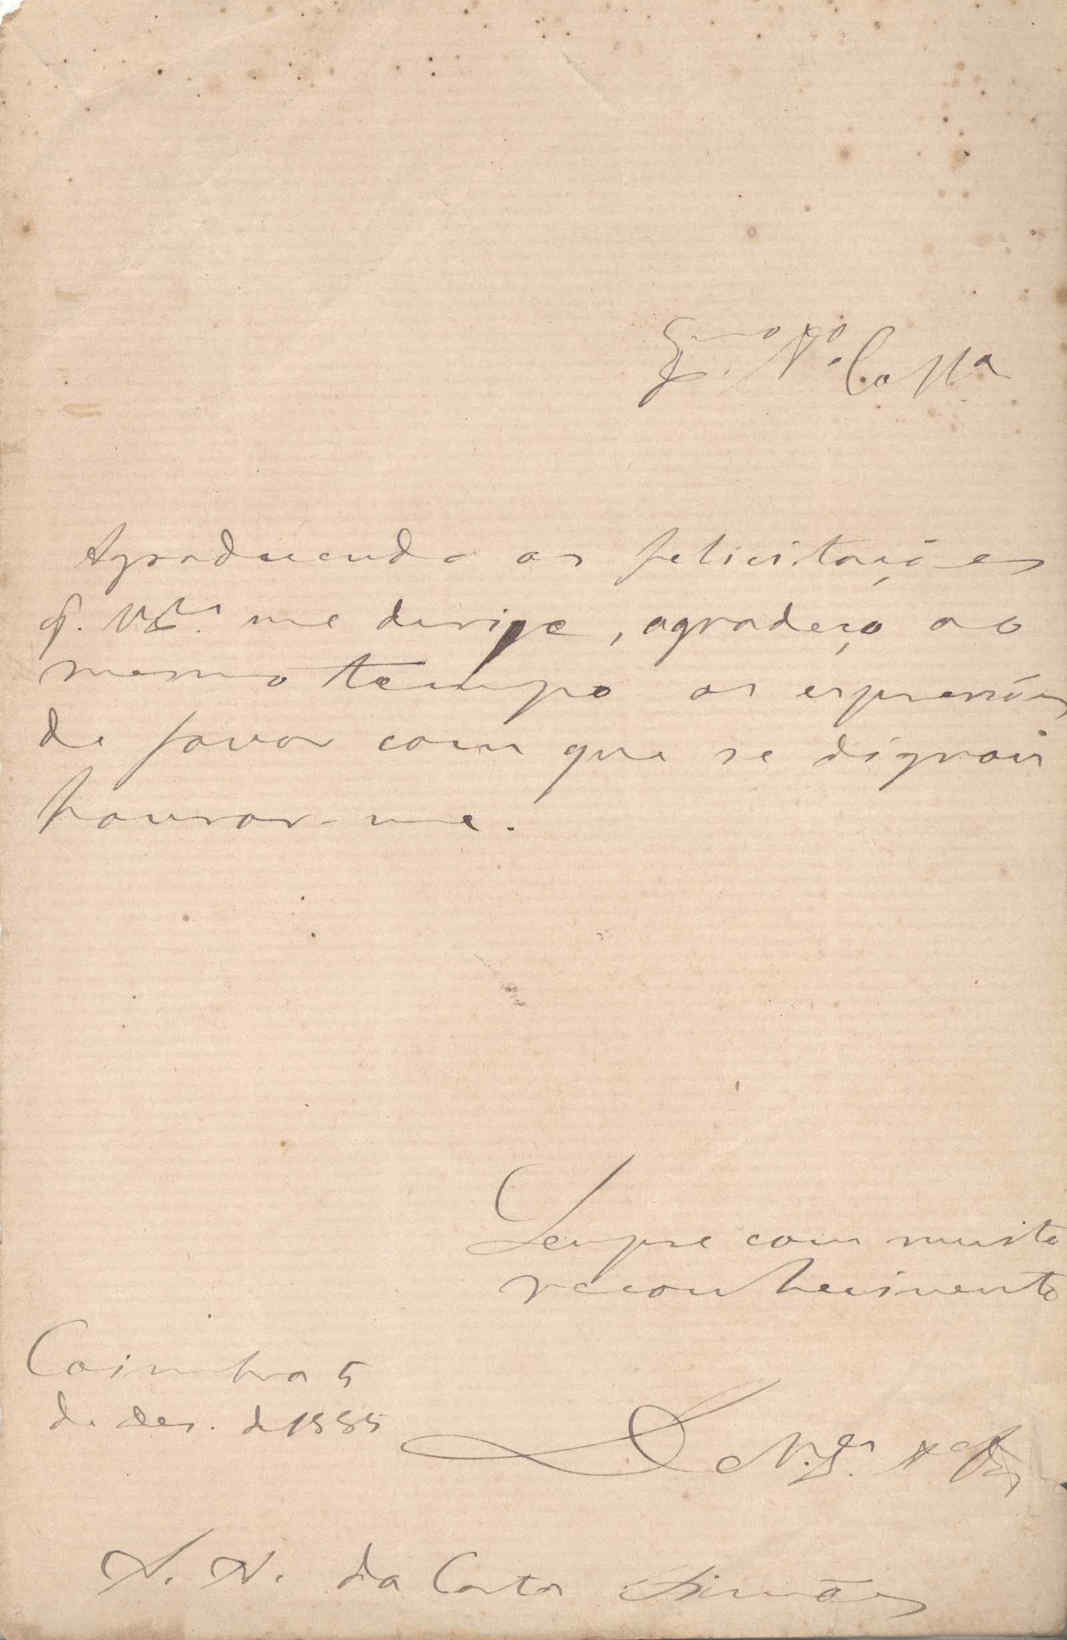 Agradecendo as felicitações
q. V. Ex.ª me dirige, agradeço ao
mesmo tempo as expressões
de favor com que se dignais
honrar-me.
Sempre com muito
reconhecimento
Coimbra 5
de Dez. de 1885
De V.
A. A. da Costa Simões